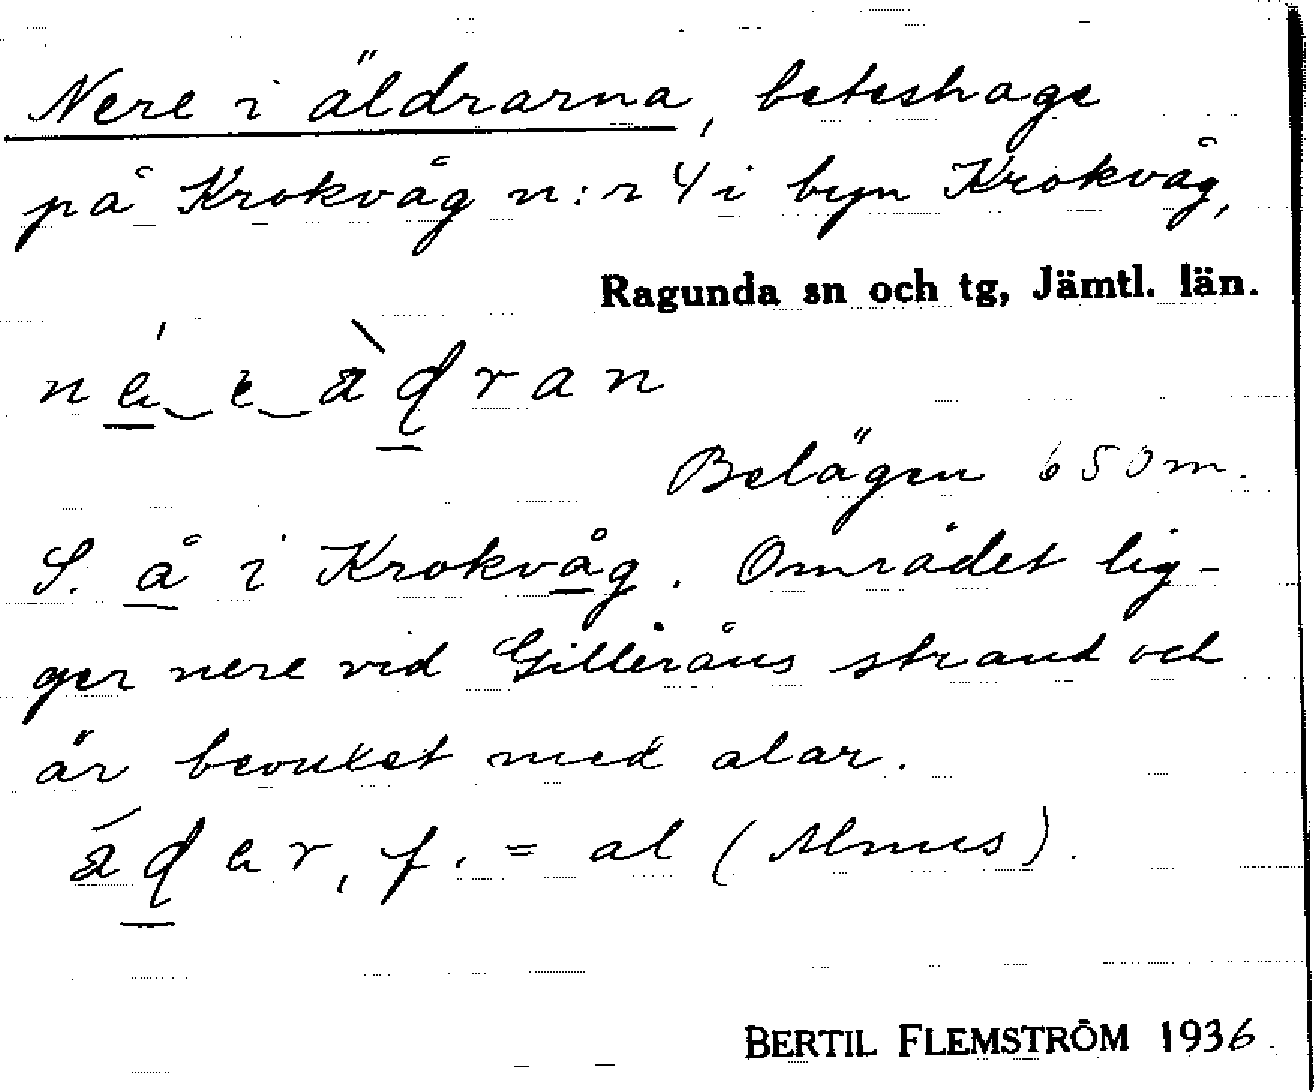 Nere i äldrarna, beteshage
på Krokvåg n:r 4 i byn Krokvåg,
Ragunda sn och tg, Jämtl. län.
Belägen 650 m.
S. å i Krokvåg. Området lig-
ger nere vid Gilleråns strand och
är bevuxet med alar.
f. = al (Alnus).
BERTIL FLEMSTRÖM 1936.